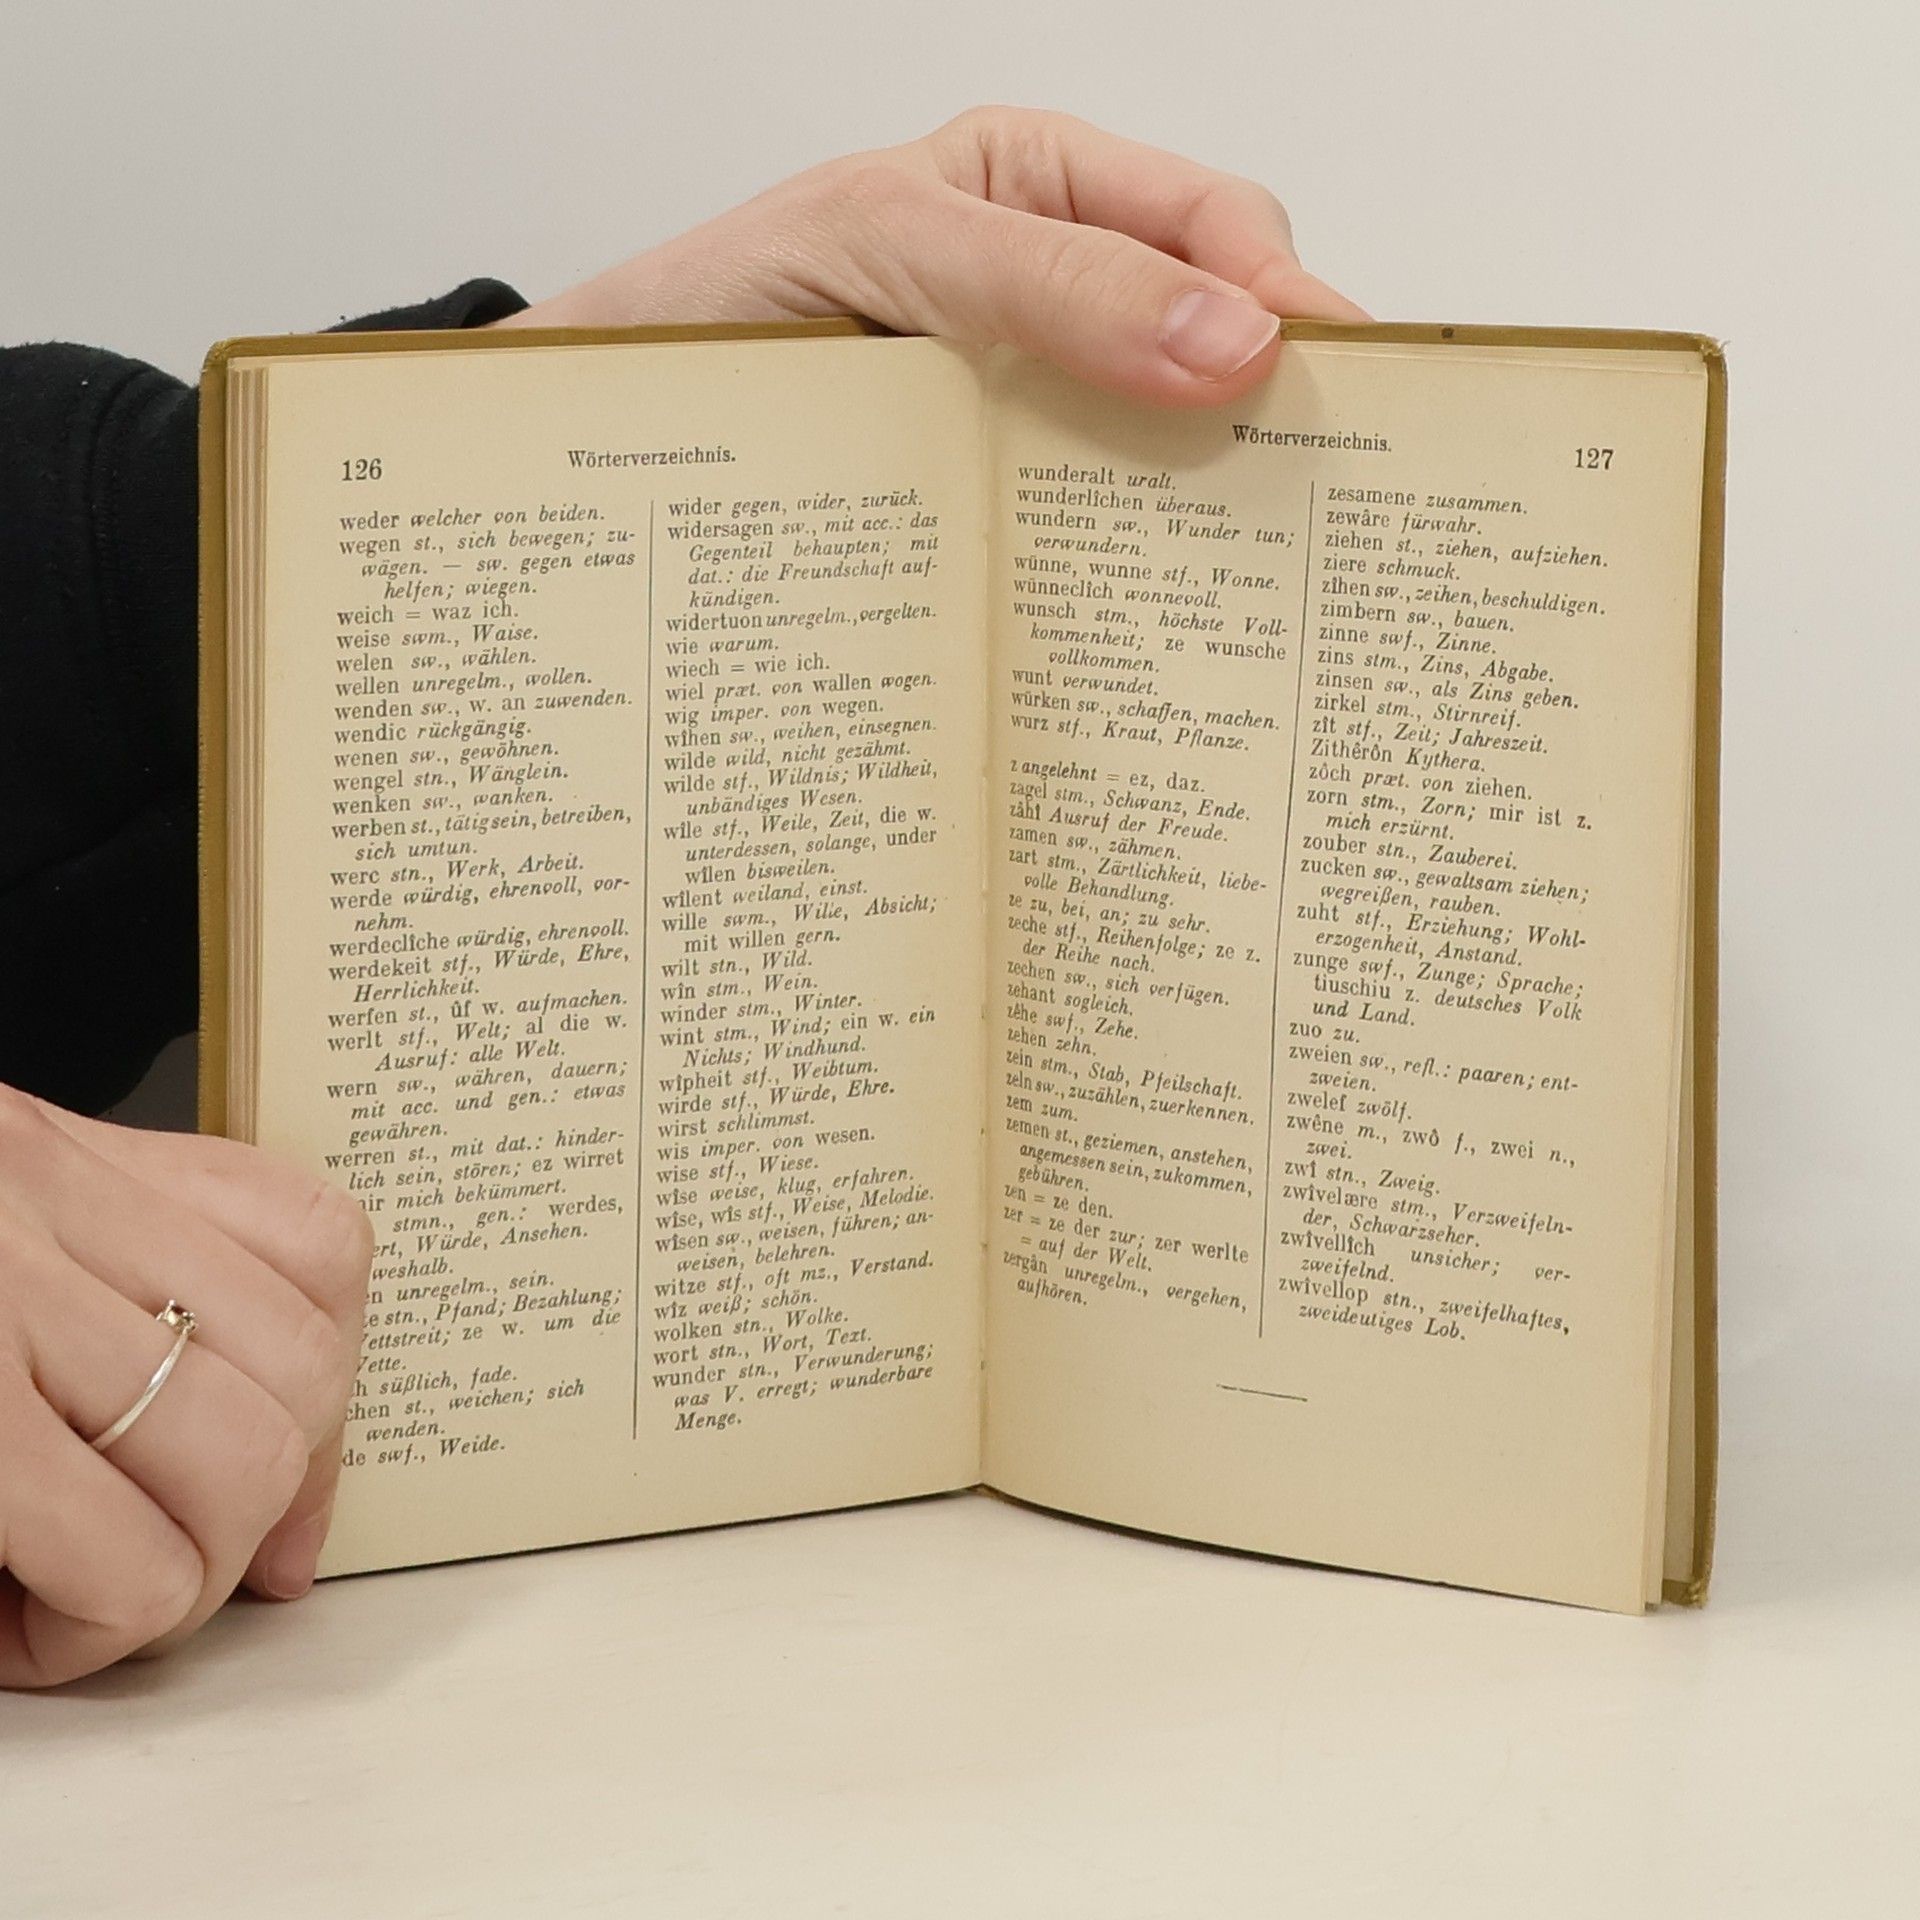 126
Wörterverzeichnis.
weder welcher von beiden.
wegen st., sich bewegen; zu-
wägen. — sw. gegen etwas
helfen; wiegen.
weich = waz ich.
weise swm., Waise.
welen sw., wählen.
wellen unregelm., wollen.
wenden sw., w. an zuwenden.
wendic rückgängig.
wenen sw., gewöhnen.
wengel stn., Wänglein.
wenken sw., wanken.
werben st., tätig sein, betreiben,
sich umtun.
werc stn., Werk, Arbeit.
werde würdig, ehrenvoll, vor-
nehm.
werdeclîche würdig, ehrenvoll.
werdekeit stf., Würde, Ehre,
Herrlichkeit.
werfen st., ûf w. aufmachen.
werlt stf., Welt; al die w.
Ausruf: alle Welt.
wern sw., währen, dauern;
mit acc. und gen.: etwas
gewähren.
werren st., mit dat.: hinder-
lich sein, stören; ez wirret
mich bekümmert.
stmn., gen.: werdes,
Würde, Ansehen.
weshalb.
unregelm., sein.
stn., Pfand; Bezahlung;
ze w. um die
süßlich, fade.
st., weichen; sich
wenden.
swf., Weide.
wider gegen, wider, zurück.
widersagen sw., mit acc.: das
Gegenteil behaupten; mit
dat.: die Freundschaft auf-
kündigen.
widertuon unregelm., vergelten.
wie warum.
wiech = wie ich.
wiel præt. von wallen wogen.
wig imper. von wegen.
wîhen sw., weihen, einsegnen.
wilde wild, nicht gezähmt.
wilde stf., Wildnis; Wildheit,
unbändiges Wesen.
wîle stf., Weile, Zeit, die w.
unterdessen, solange, under
wîlen bisweilen.
wîlent weiland, einst.
wille swm., Wille, Absicht;
mit willen gern.
wilt stn., Wild.
wîn stm., Wein.
winder stm., Winter.
wint stm., Wind; ein w. ein
Nichts; Windhund.
wîpheit stf., Weibtum.
wirde stf., Würde, Ehre.
wirst schlimmst.
wis imper. von wesen.
wise stf., Wiese.
wîse weise, klug, erfahren.
wîse, wîs stf., Weise, Melodie.
wîsen sw., weisen, führen; an-
weisen, belehren.
witze stf., oft mz., Verstand.
wîz weiß; schön.
wolken stn., Wolke.
wort stn., Wort, Text.
wunder stn., Verwunderung;
was V. erregt; wunderbare
Menge.
Wörterverzeichnis.
127
wunderalt uralt.
wunderlîchen überaus.
wundern sw., Wunder tun;
verwundern.
wünne, wunne stf., Wonne.
wünneclîch wonnevoll.
wunsch stm., höchste Voll-
kommenheit; ze wunsche
vollkommen.
wunt verwundet.
würken sw., schaffen, machen.
wurz stf., Kraut, Pflanze.
z angelehnt = ez, daz.
zagel stm., Schwanz, Ende.
zâhî Ausruf der Freude.
zamen sw., zähmen.
zart stm., Zärtlichkeit, liebe-
volle Behandlung.
ze zu, bei, an; zu sehr.
zeche stf., Reihenfolge; ze z.
der Reihe nach.
zechen sw., sich verfügen.
zehant sogleich.
zêhe swf., Zehe.
zehen zehn.
zein stm., Stab, Pfeilschaft.
zeln sw., zuzählen, zuerkennen.
zem zum.
zemen st., geziemen, anstehen,
angemessen sein, zukommen,
gebühren.
zen = ze den.
zer = ze der zur; zer werlte
= auf der Welt.
zergân unregelm., vergehen,
aufhören.
zesamene zusammen.
zewâre fürwahr.
ziehen st., ziehen, aufziehen.
ziere schmuck.
zîhen sw., zeihen, beschuldigen.
zimbern sw., bauen.
zinne swf., Zinne.
zins stm., Zins, Abgabe.
zinsen sw., als Zins geben.
zirkel stm., Stirnreif.
zît stf., Zeit; Jahreszeit.
Zithêrôn Kythera.
zôch præt. von ziehen.
zorn stm., Zorn; mir ist z.
mich erzürnt.
zouber stn., Zauberei.
zucken sw., gewaltsam ziehen;
wegreißen, rauben.
zuht stf., Erziehung; Wohl-
erzogenheit, Anstand.
zunge swf., Zunge; Sprache;
tiuschiu z. deutsches Volk
und Land.
zuo zu.
zweien sw., refl.: paaren; ent-
zweien.
zwelef zwölf.
zwêne m., zwô f., zwei n.,
zwei.
zwî stn., Zweig.
zwîvelære stm., Verzweifeln-
der, Schwarzseher.
zwîvellîch unsicher; ver-
zweifelnd.
zwîvellop stn., zweifelhaftes,
zweideutiges Lob.